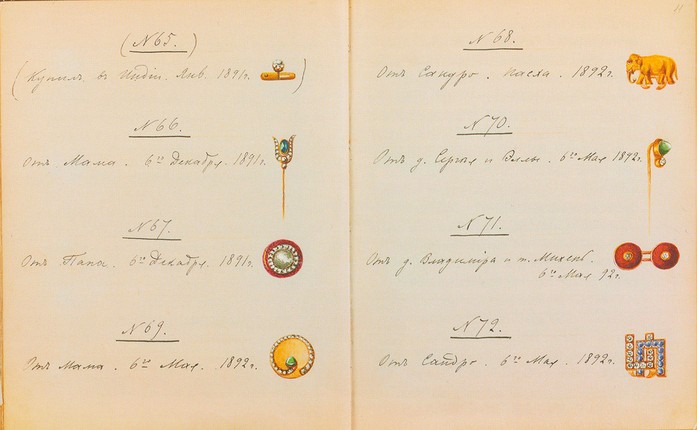 (№ 65.)
(Купилъ въ Индіи. Янв. 1891г.)
№ 66.
Отъ Мама. 6го Декабря. 1891г.
№ 67.
Отъ Папа. 6го Декабря. 1891г.
№ 69.
Отъ Мама. 6го Мая. 1892г.
11
№ 68.
Отъ Сандро. Пасха. 1892г.
№ 70.
Отъ д. Сергѣя и Эллы. 6го Мая 1892г.
№ 71.
Отъ д. Владиміра и т. Михень.
6го Мая 92г.
№ 72.
Отъ Сандро. 6го Мая 1892г.